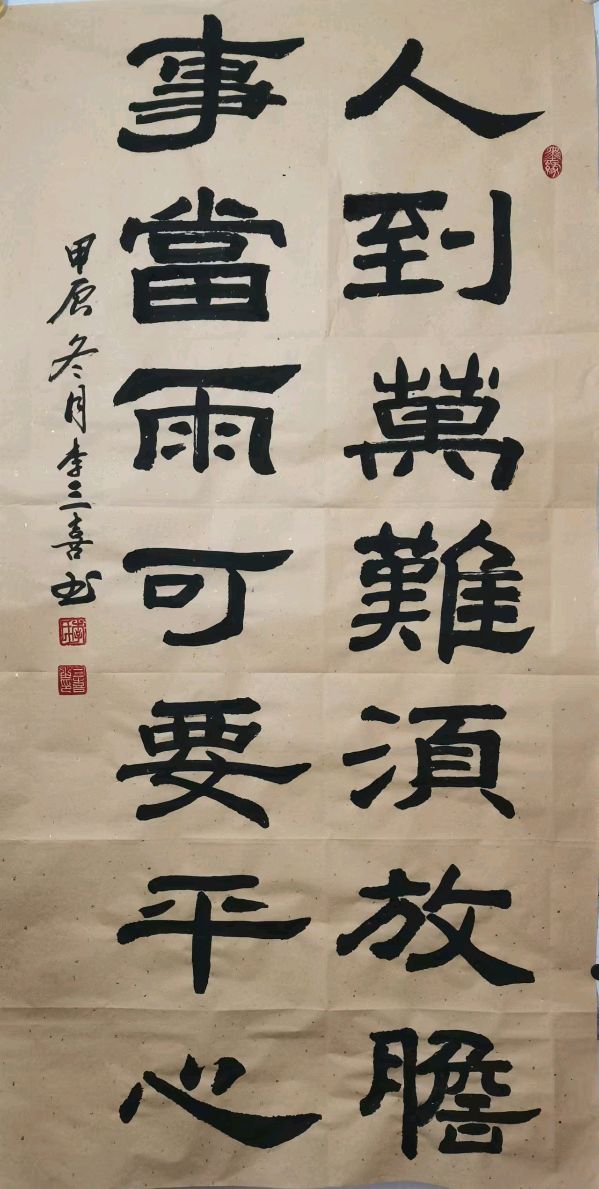 人到萬難須放膽
事當雨可要平心
甲辰冬月李三喜书